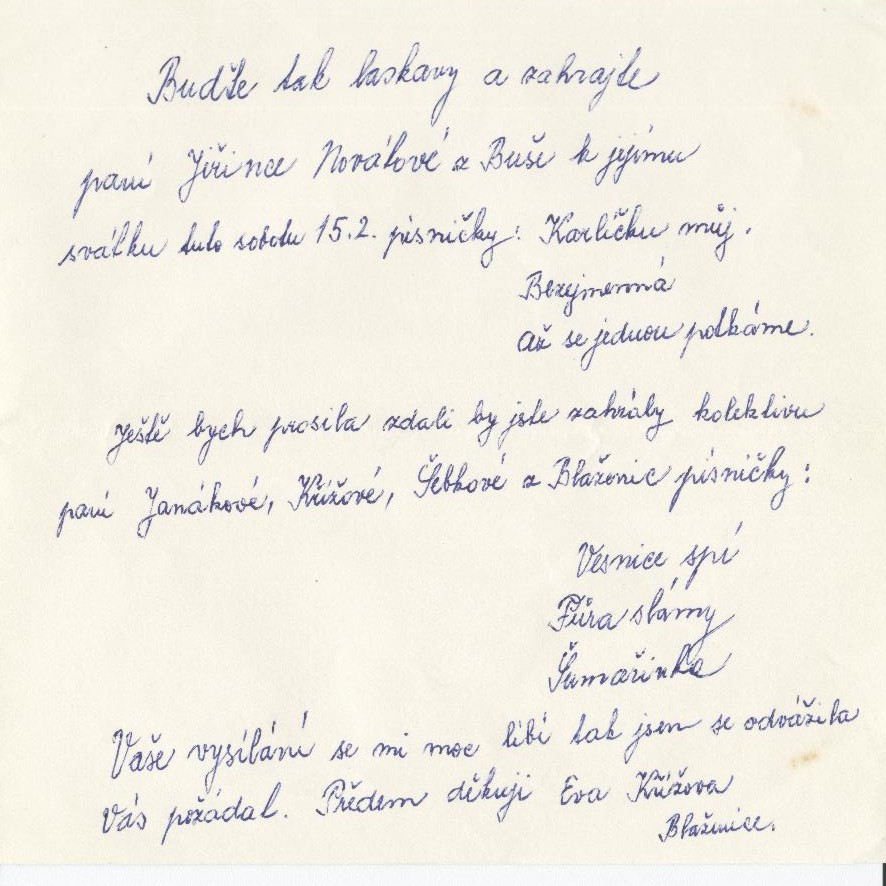 Buďte tak laskavy a zahrajte
paní Jiřince Novákové z Buše k jejímu
svátku tuto sobotu 15.2. písničky: Karlíčku můj.
Bezejmenná
až se jednou potkáme.
Ještě bych prosila zdali by jste zahrály kolektivu
paní Janákové, Křížové, Šebkové z Blaženic písničky:
Vesnice spí
Fůra slámy
Šumařinka
Vaše vysílání se mi moc líbí tak jsem se odvážila
Vás požádal. Předem děkuji Eva Křížova
Blaženice.